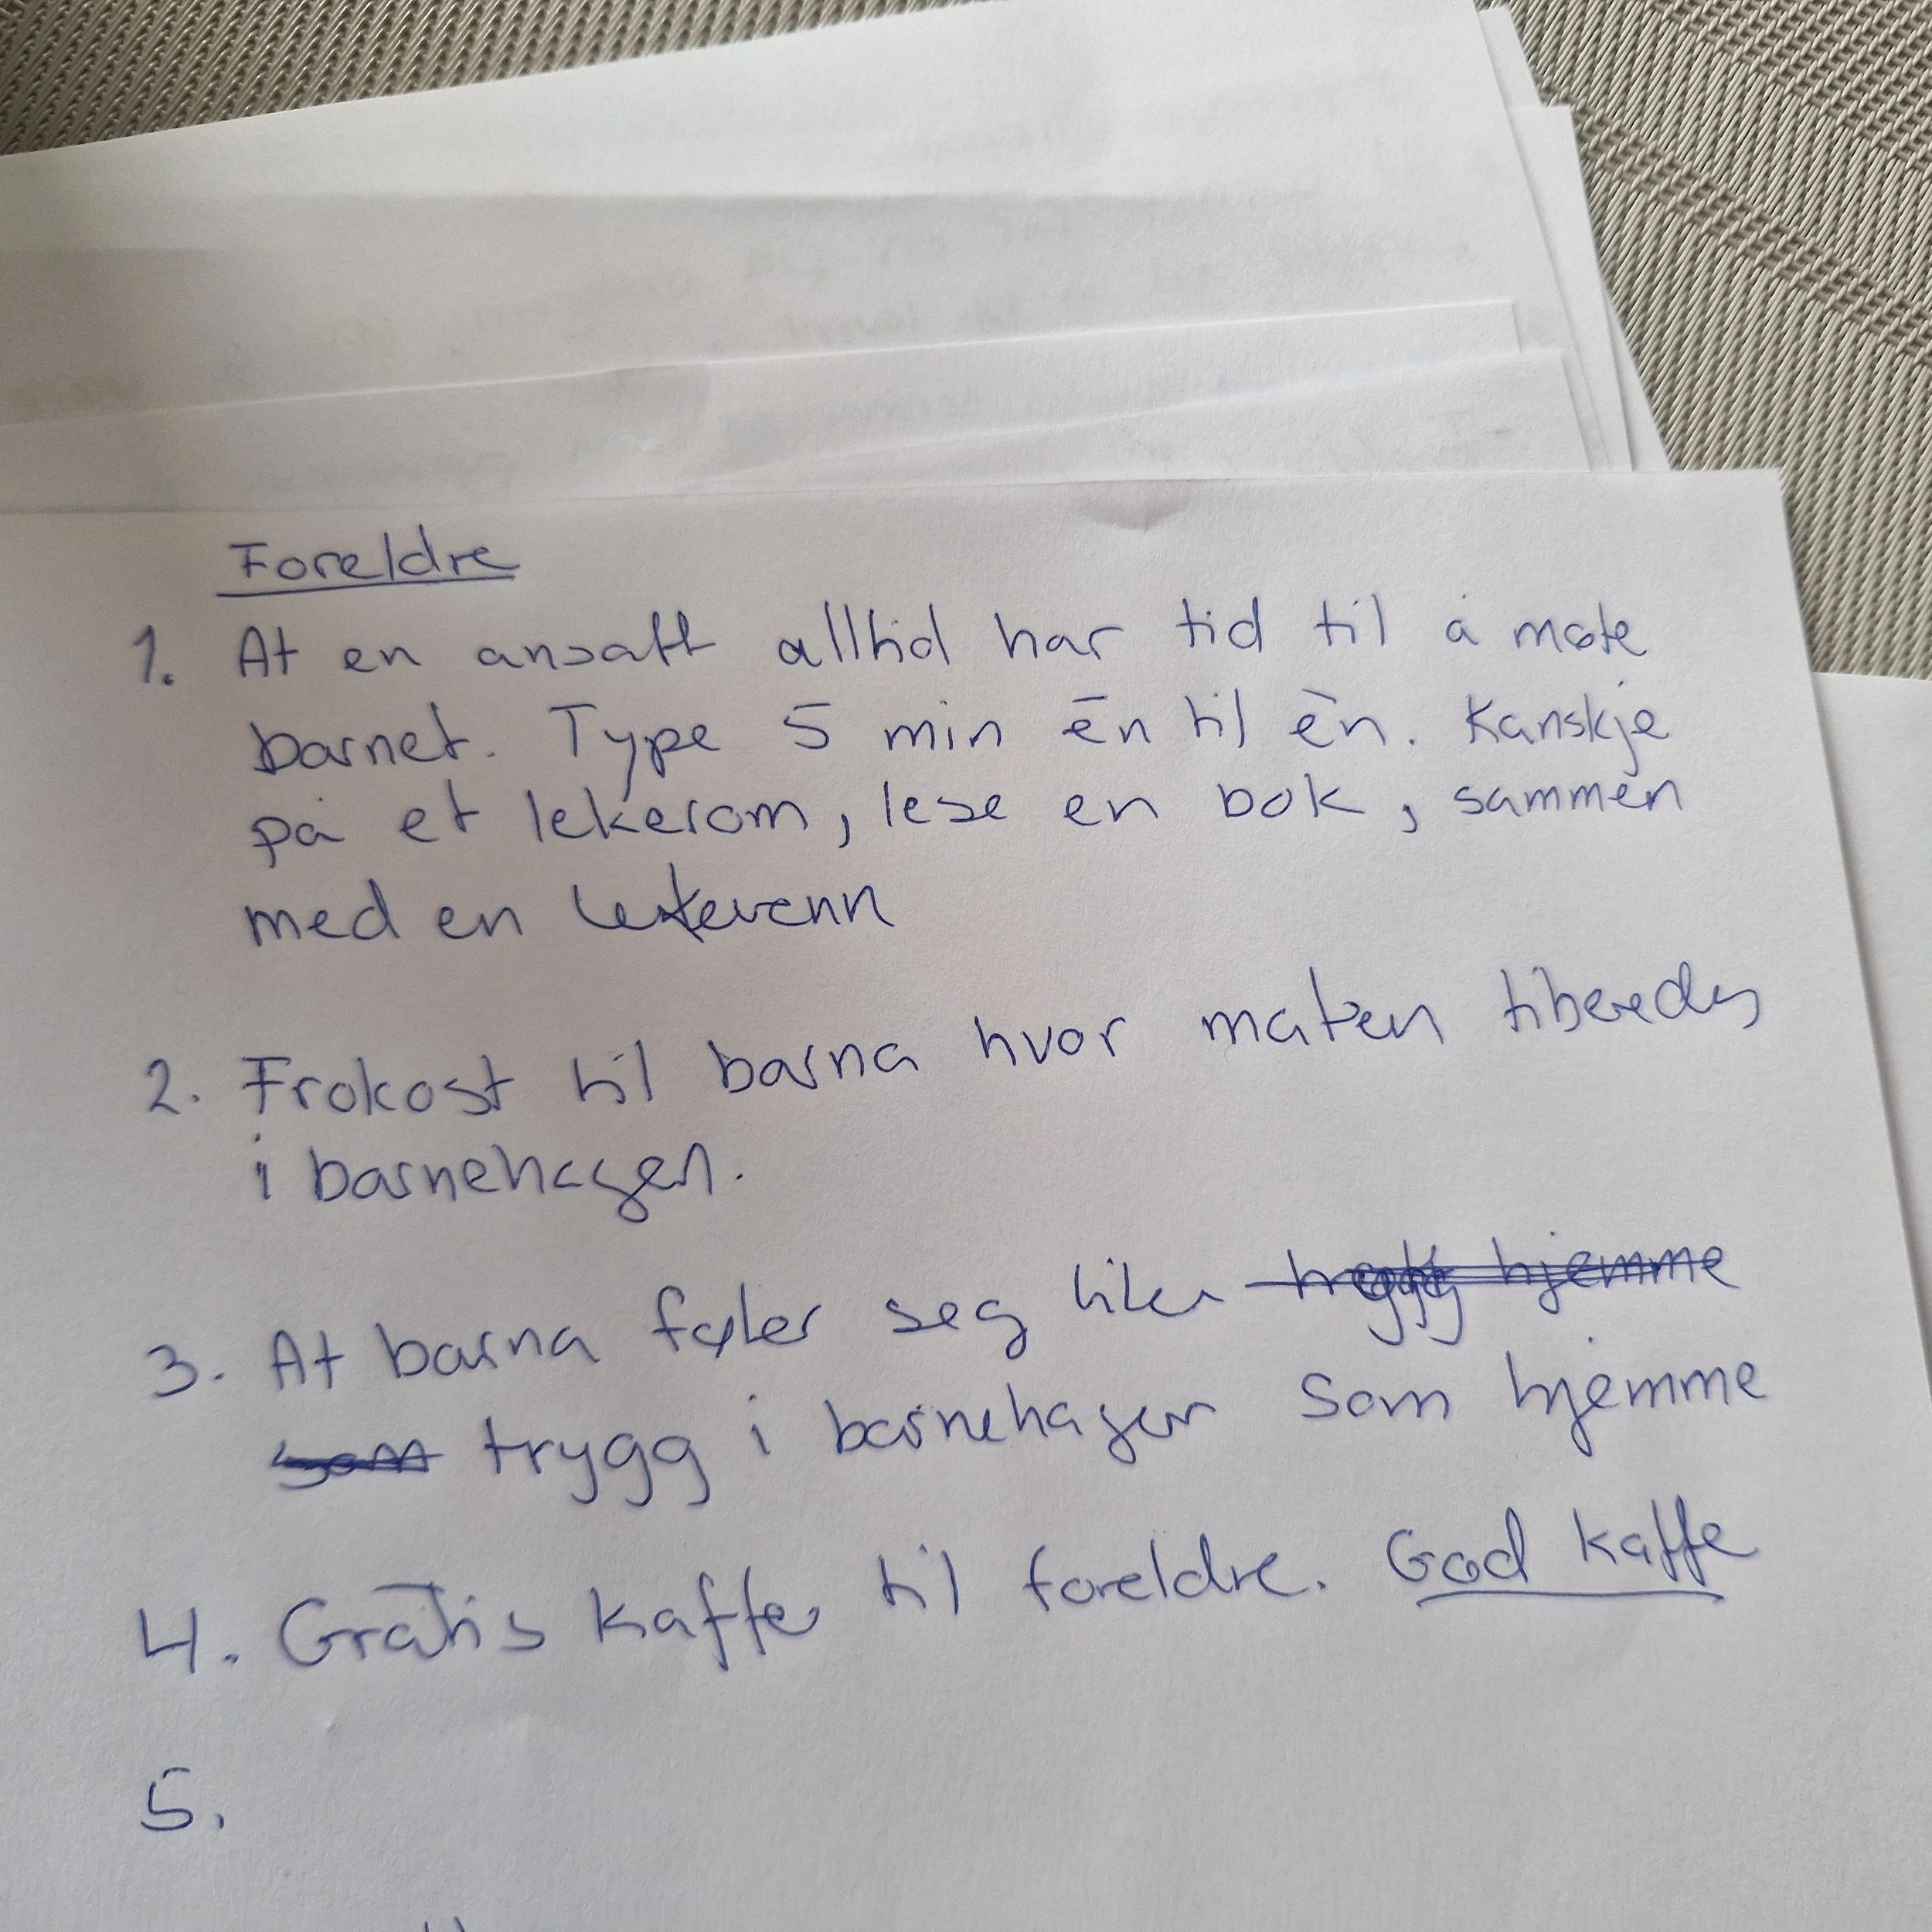 Foreldre
1. At en ansatt alltid har tid til å møte
barnet. Type 5 min én til én. Kanskje
på et lekerom, lese en bok, sammen
med en lekevenn
2. Frokost til barna hvor maten tilberedes
i barnehagen.
3. At barna føler seg like trygg hjemme
som trygg i barnehagen som hjemme
4. Gratis kaffe til foreldre. God kaffe
5.